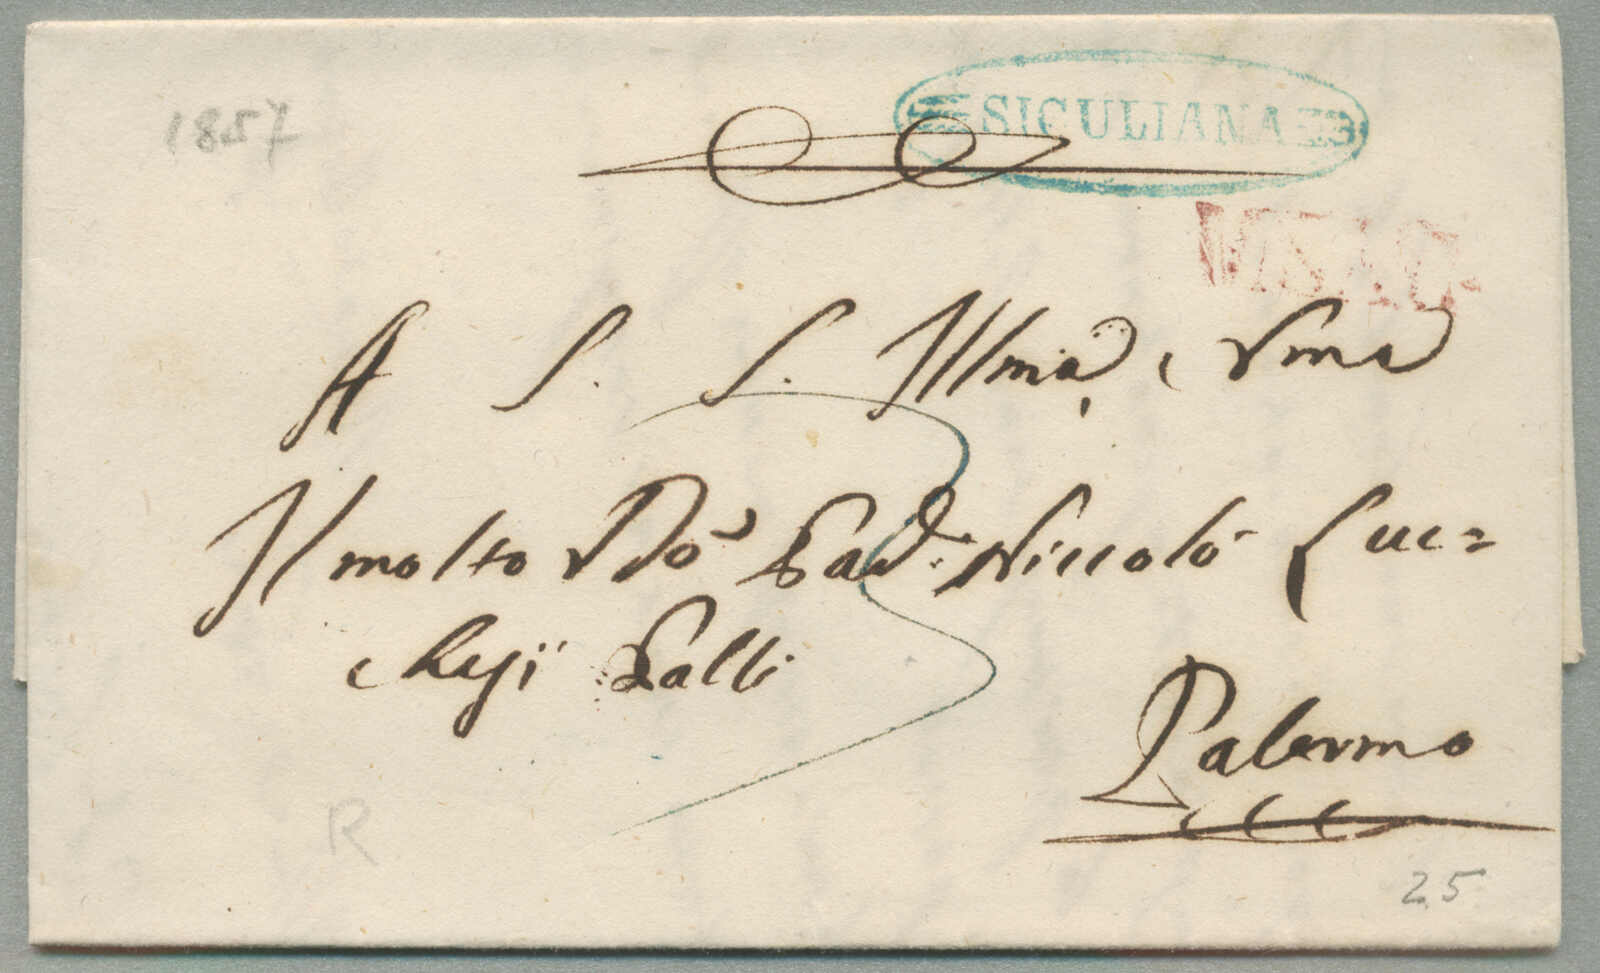 1857
SICULIANA
A S. S. Illma, e Rma
Il molto Rdo Pad. Niccolò Luc=
chesi Palli
Palermo
3
R
25